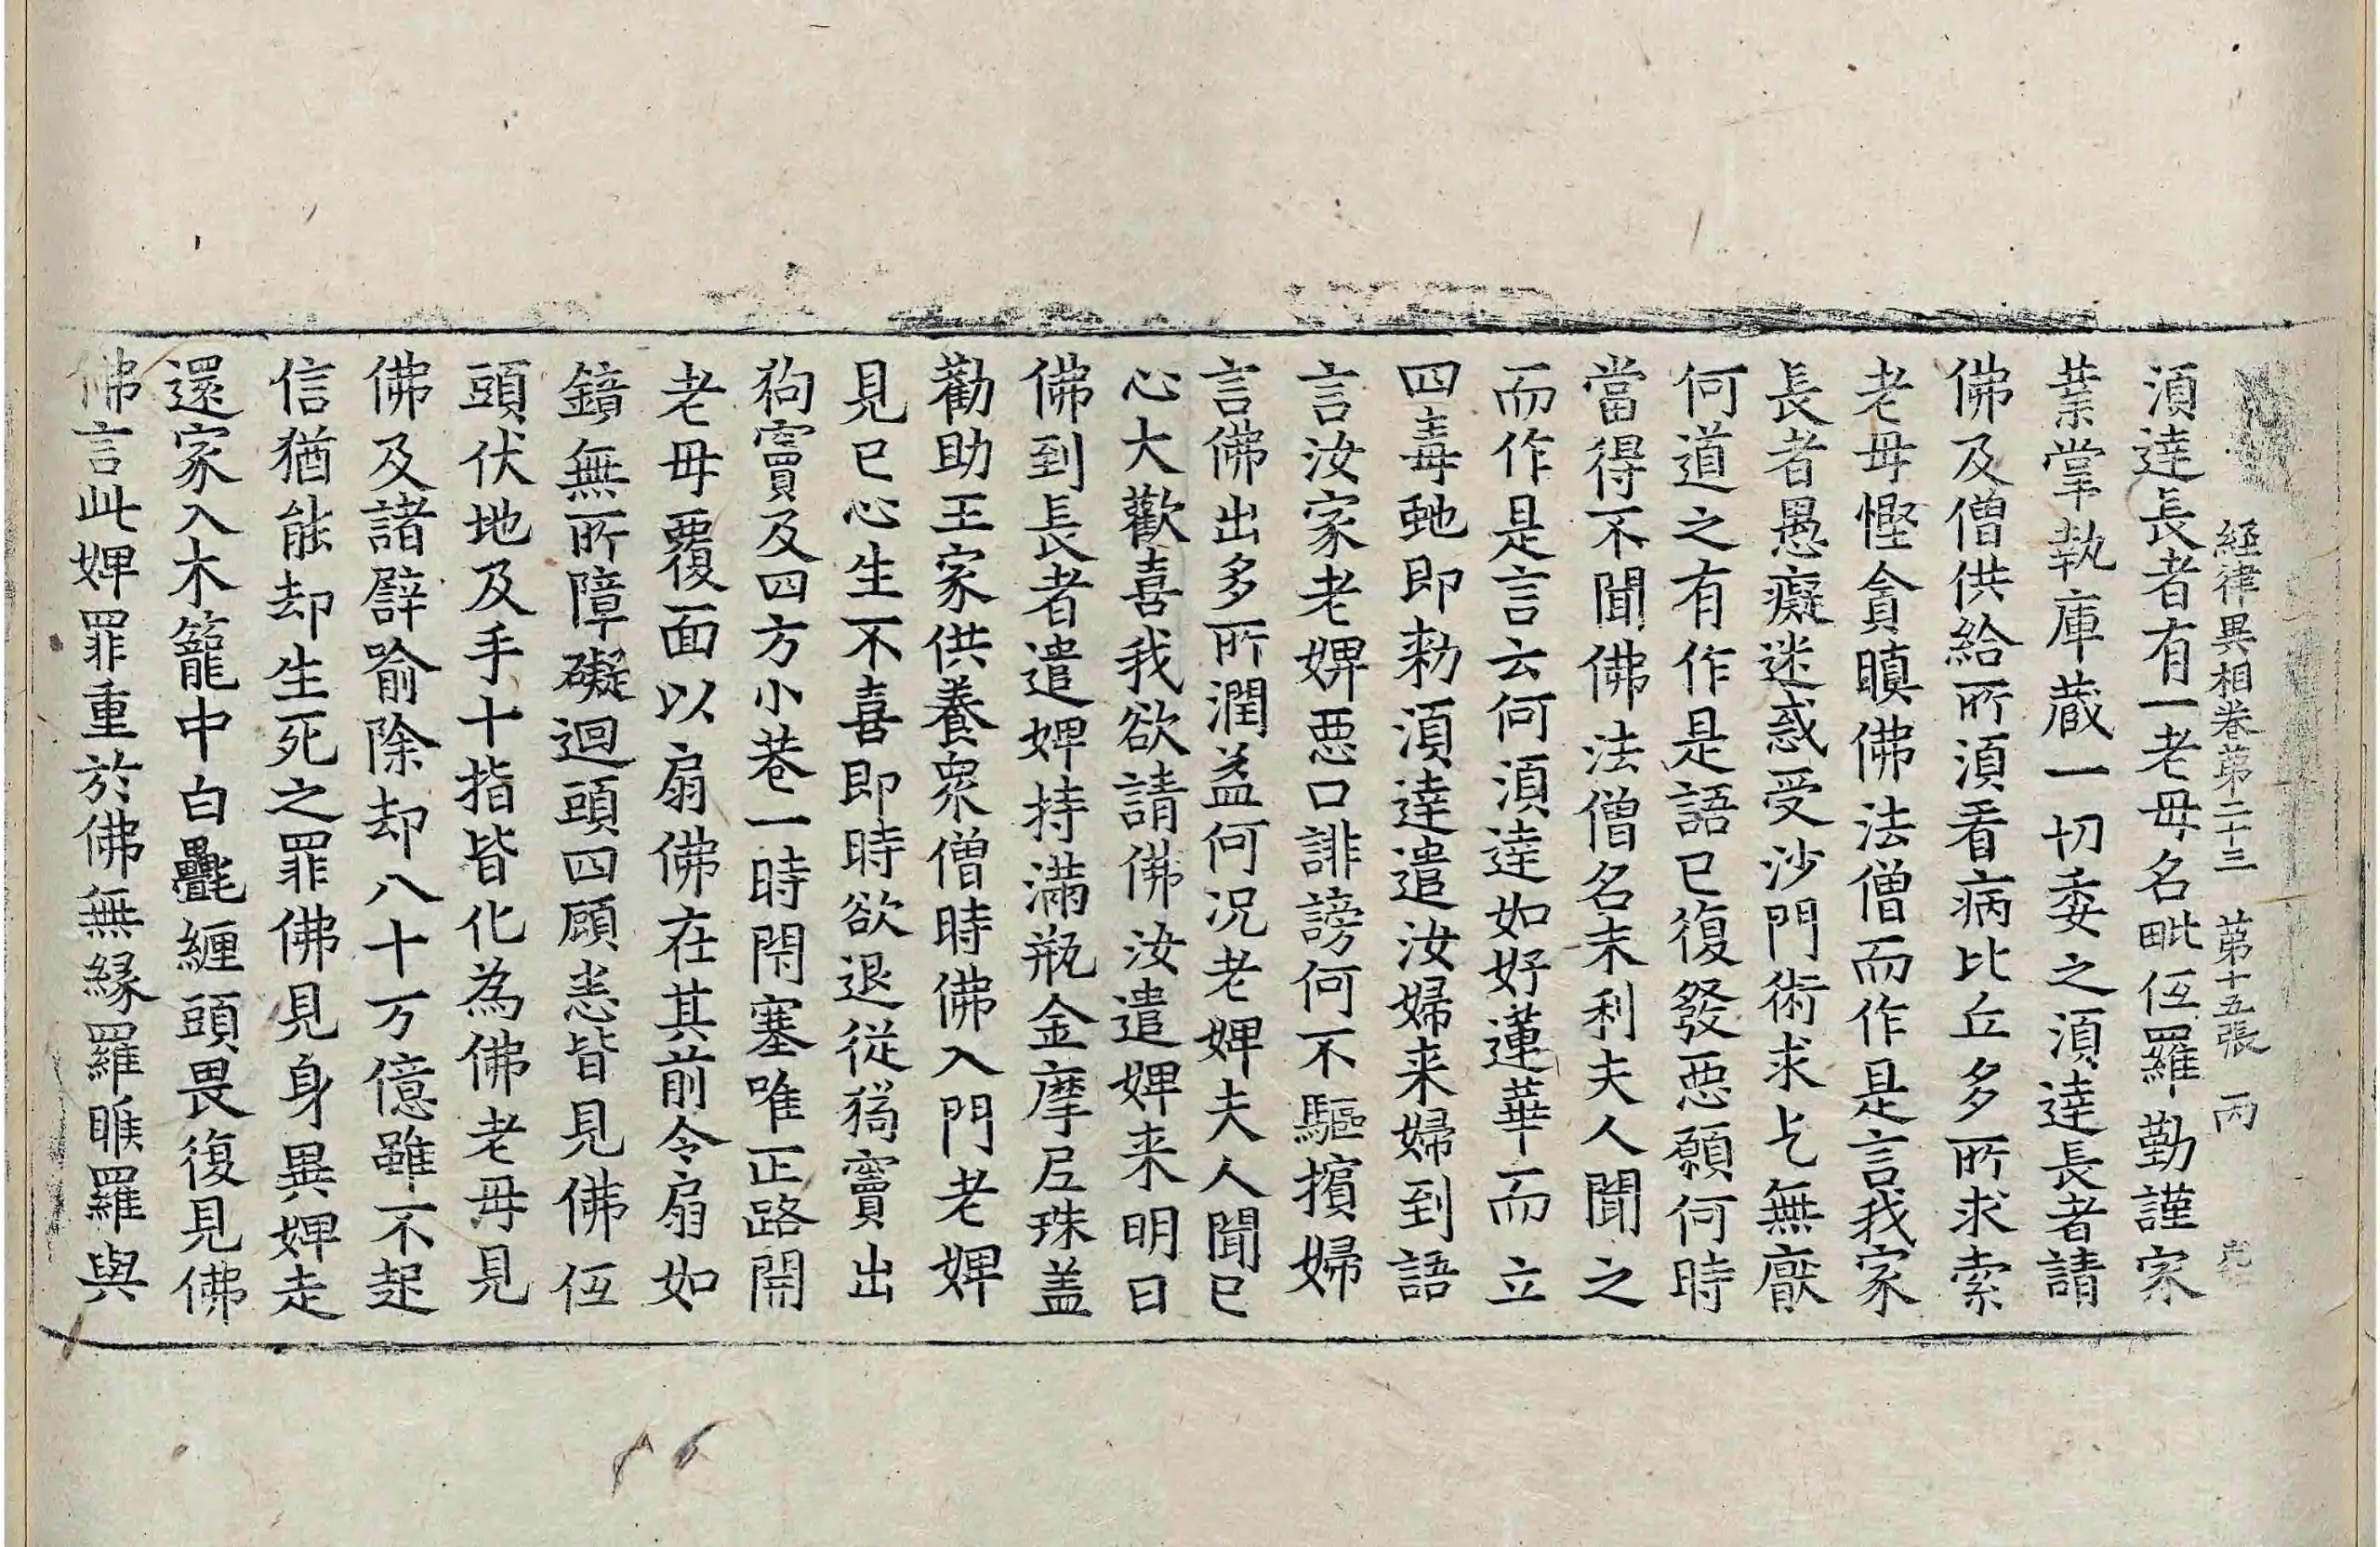 經律異相卷苐二十三 苐十五張 丙
湏達長者有一老毋名毗伍羅勤謹家
業掌執庫蔵一切委之湏達長者請
佛及僧供給所湏看病比丘多所求索
老毋慳貪瞋佛法僧而作是言我家
長者愚癡迷惑受沙門術求乞無厭
何道之有作是語已復發惡願何時
當得不聞佛法僧名末利夫人聞之
而作是言云何湏達如好蓮華而立
四毒虵即勑湏達遣汝婦来婦到語
言汝家老婢惡口誹謗何不驅擯婦
言佛出多所潤益何况老婢夫人聞已
心大歡喜我欲請佛汝遣婢来明日
佛到長者遣婢持滿瓶金摩尼珠盖
勸助王家供養衆僧時佛入門老婢
見已心生不喜即時欲退従狗竇出
狗竇及四方小巷一時閇塞唯正路開
老毋覆面以扇佛在其前令扇如
鏡無所障礙迴頭四顧悉皆見佛伍
頭伏地及手十指皆化為佛老毋見
佛及諸辟喻除却八十万億雖不起
信猶能却生死之罪佛見身異婢走
還家入木籠中白㲲纏頭畏復見佛
佛言此婢罪重於佛無緣羅睺羅與